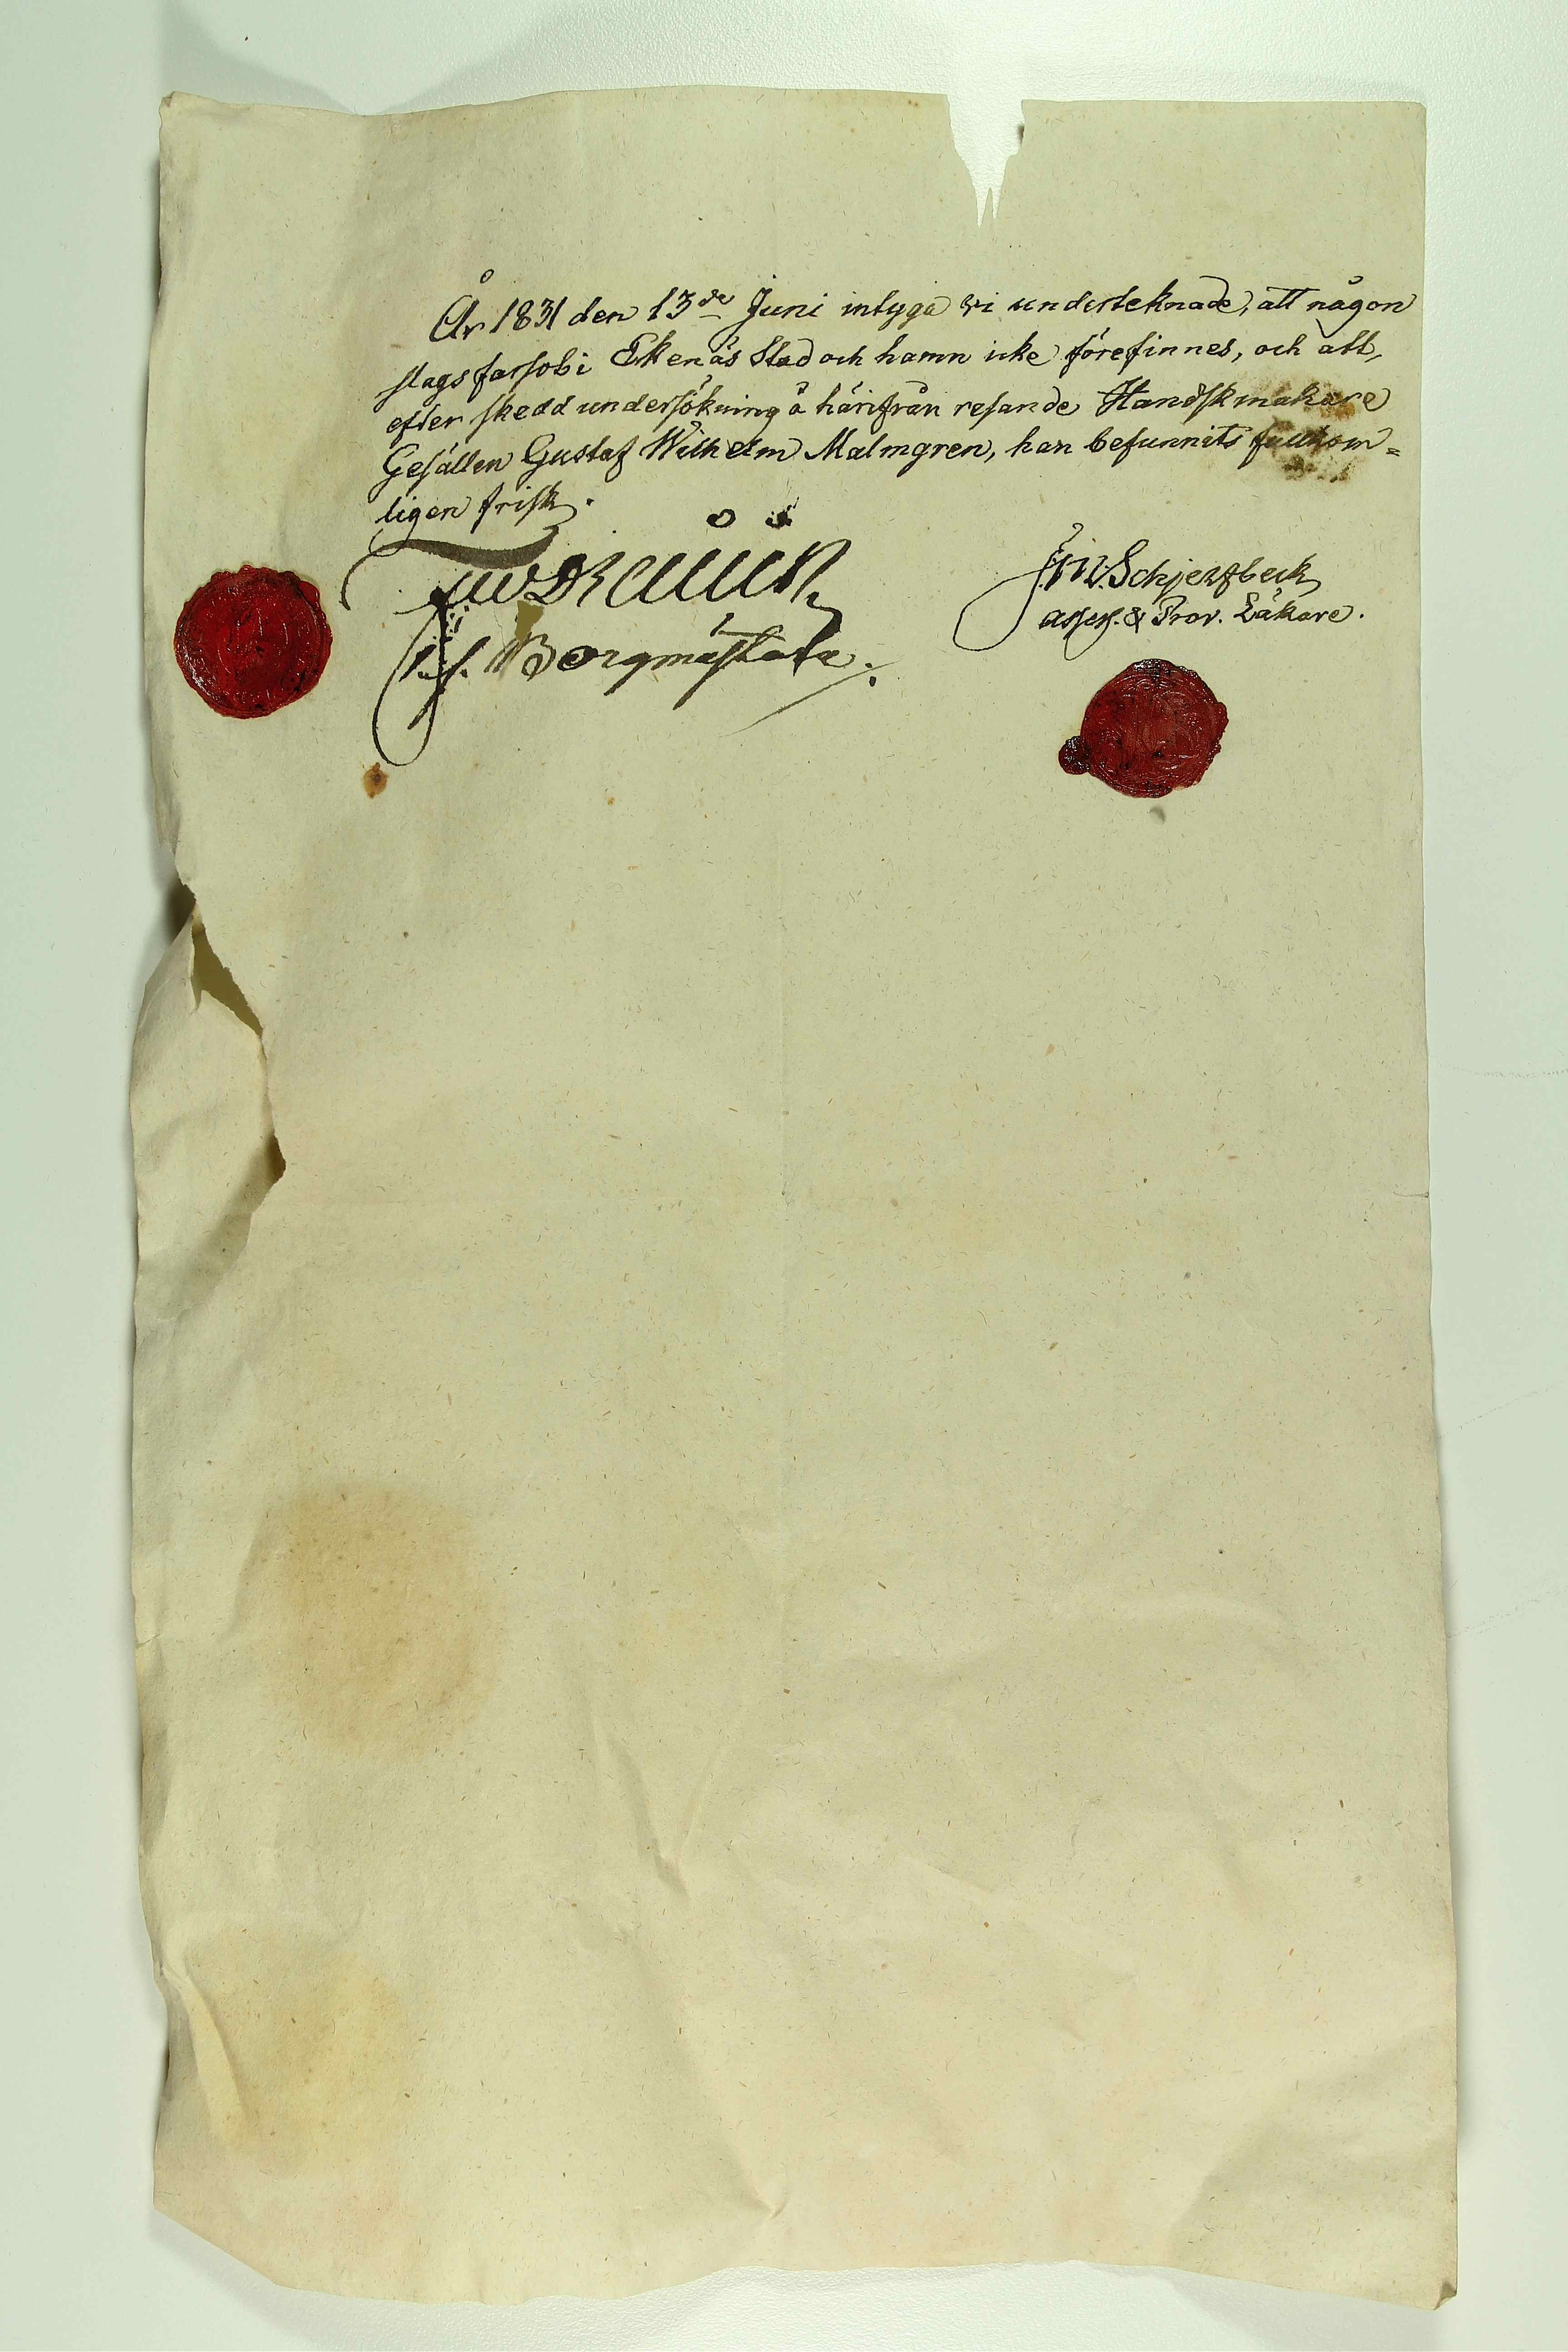 År 1831 den 13de Juni intyga vi undertecknade, att någon
slags farsot i Ekenäs Stad och hamn icke förefinnes, och att,
efter skedd undersökning å härifrån resande Handskmakare
Gesällen Gustaf Wilhelm Malmgren, han befunnits fullkom=
ligen frisk.
t. f. Borgmästare.
Schjerfbeck
asses. & Prov. Läkare.